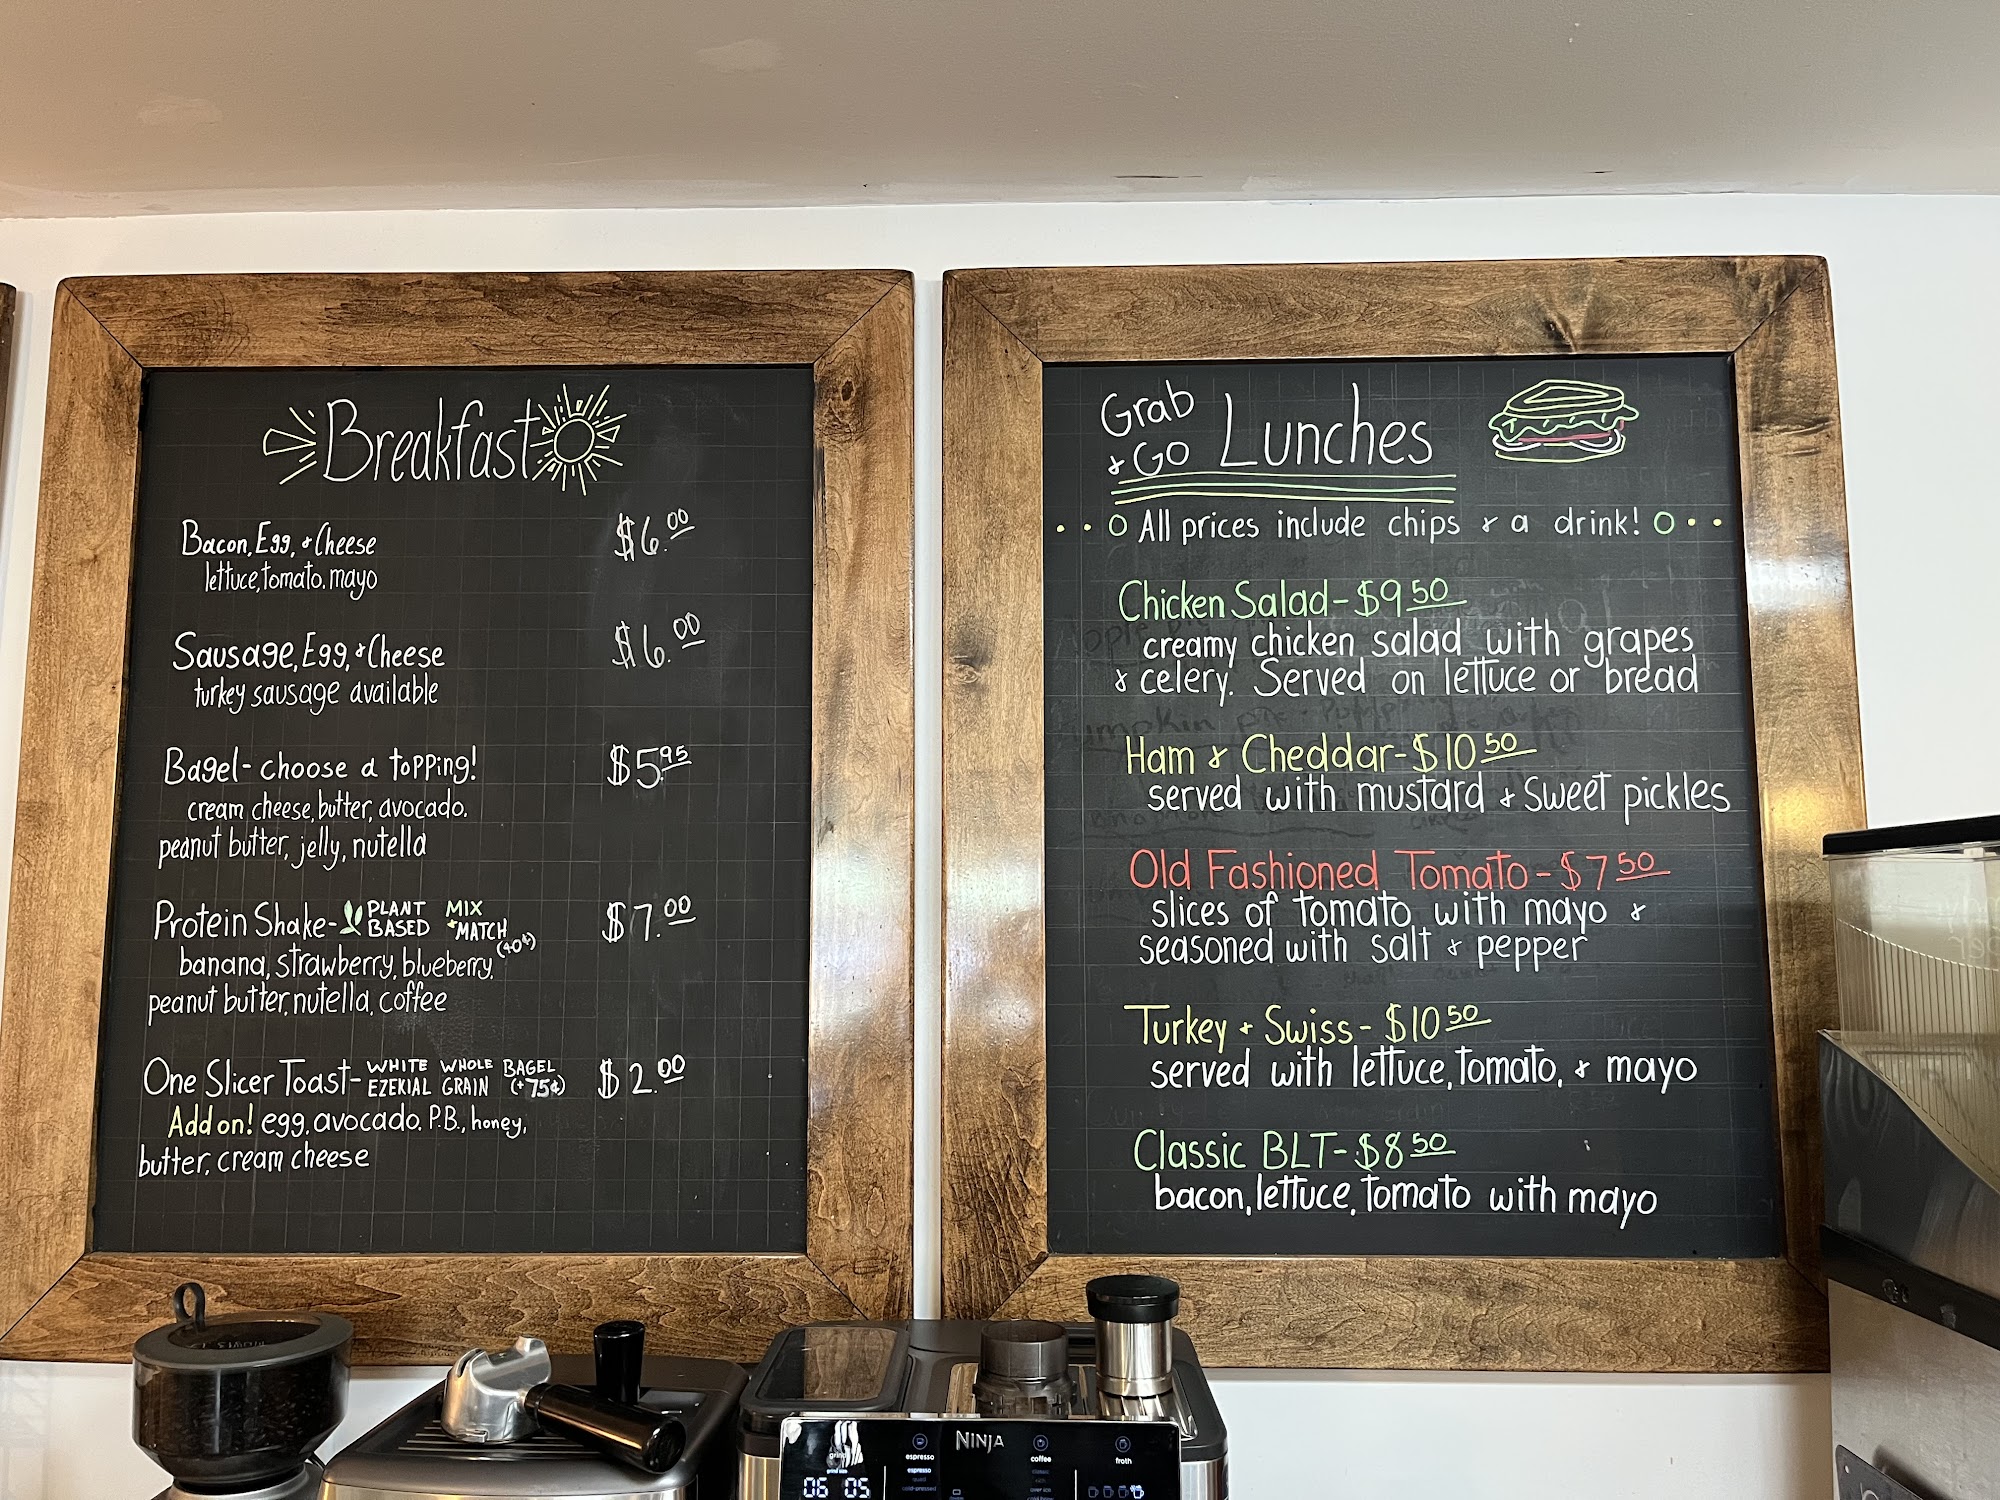 Breakfast
Bacon, Egg, & Cheese $6.00
lettuce, tomato, mayo
Sausage, Egg, & Cheese $6.00
turkey sausage available
Bagel - choose a topping! $5.95
cream cheese, butter, avocado.
peanut butter, jelly, nutella
Protein Shake - PLANT BASED MIX + MATCH (40¢) $7.00
banana, strawberry, blueberry,
peanut butter, nutella, coffee
One Slicer Toast - WHITE WHOLE BAGEL $2.00
EZEKIAL GRAIN (+75¢)
Add on! egg, avocado, P.B., honey,
butter, cream cheese
Grab & GO Lunches
All prices include chips & a drink!
Chicken Salad - $9.50
creamy chicken salad with grapes
& celery. Served on lettuce or bread
Ham & Cheddar - $10.50
served with mustard & sweet pickles
Old Fashioned Tomato - $7.50
slices of tomato with mayo &
seasoned with salt & pepper
Turkey + Swiss - $10.50
served with lettuce, tomato, & mayo
Classic BLT - $8.50
bacon, lettuce, tomato with mayo
NINJA
espresso coffee froth
espresso
06 05